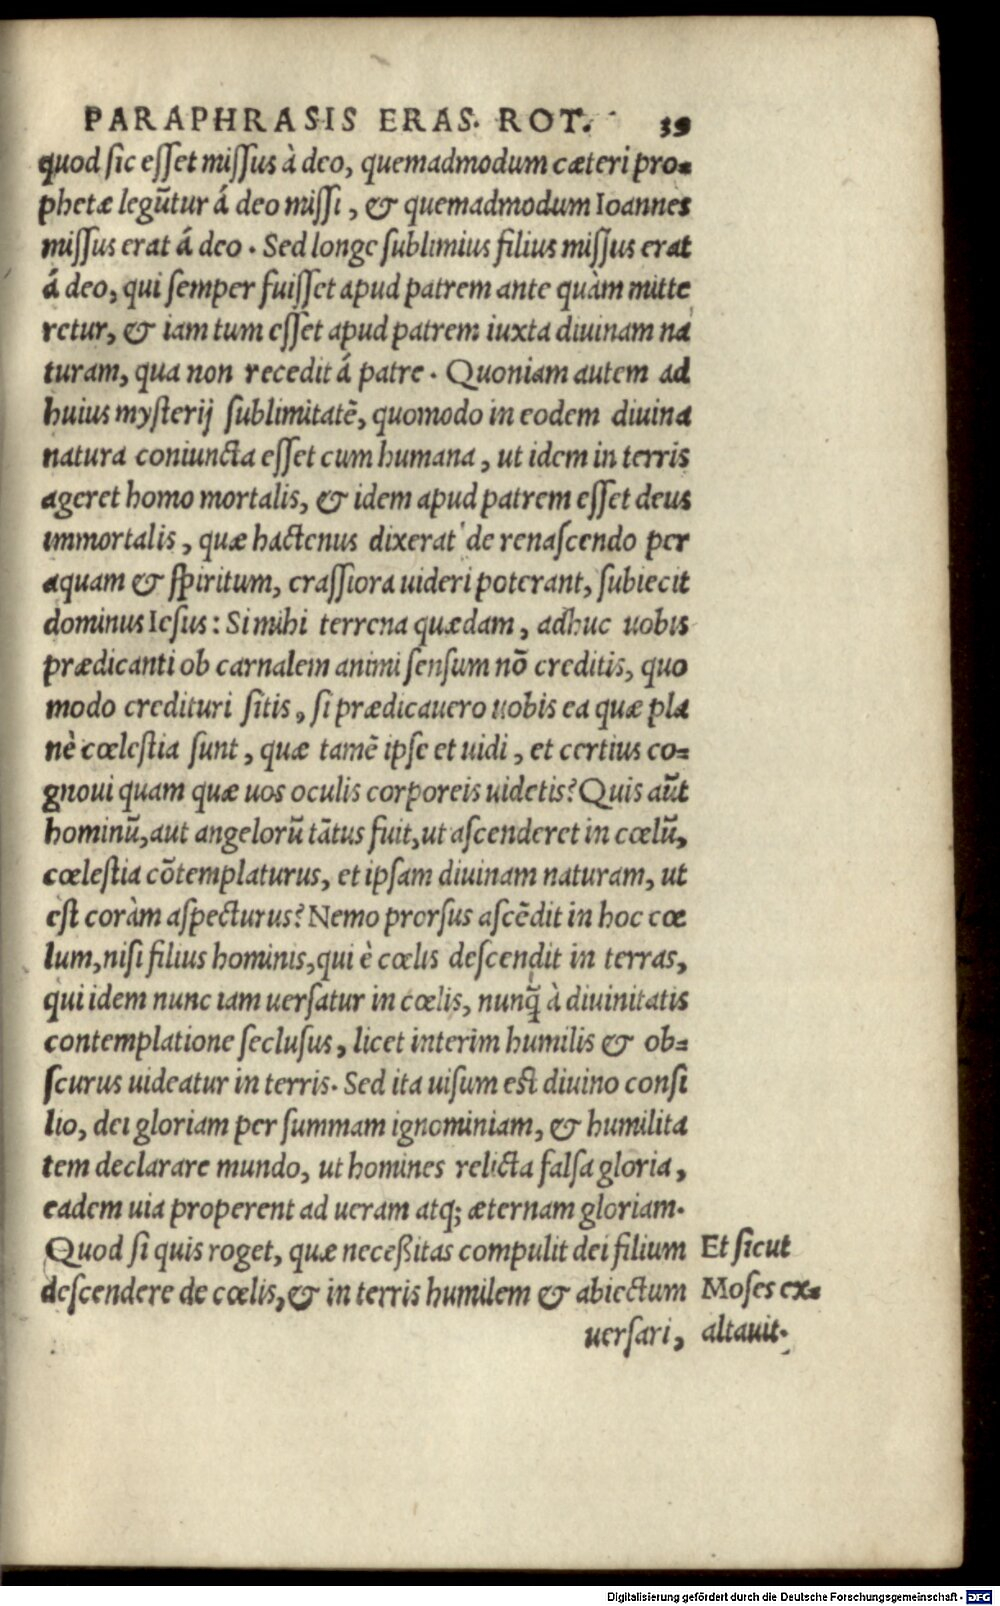 PARAPHRASIS ERAS. ROT. 39
quod sic esset missus à deo, quemadmodum cæteri pro-
phetæ legūtur á deo missi, & quemadmodum Ioannes
missus erat á deo. Sed longe sublimius filius missus erat
á deo, qui semper fuisset apud patrem ante quàm mitte
retur, & iam tum esset apud patrem iuxta diuinam na
turam, qua non recedit á patre. Quoniam autem ad
huius mysterij sublimitatē, quomodo in eodem diuina
natura coniuncta esset cum humana, ut idem in terris
ageret homo mortalis, & idem apud patrem esset deus
immortalis, quæ hactenus dixerat de renascendo per
aquam & spiritum, crassiora uideri poterant, subiecit
dominus Iesus: Si mihi terrena quædam, adhuc uobis
prædicanti ob carnalem animi sensum nō creditis, quo
modo credituri sitis, si prædicauero uobis ea quæ pla
nè cœlestia sunt, quæ tamē ipse et uidi, et certius co-
gnoui quam quæ uos oculis corporeis uidetis? Quis aūt
hominū, aut angelorū tātus fuit, ut ascenderet in cœlū,
cœlestia cōtemplaturus, et ipsam diuinam naturam, ut
est coràm aspecturus? Nemo prorsus ascēdit in hoc cœ
lum, nisi filius hominis, qui è cœlis descendit in terras,
qui idem nunc iam uersatur in cœlis, nunq̃ à diuinitatis
contemplatione seclusus, licet interim humilis & ob-
scurus uideatur in terris. Sed ita uisum est diuino consi
lio, dei gloriam per summam ignominiam, & humilita
tem declarare mundo, ut homines relicta falsa gloria,
eadem uia properent ad ueram atq; æternam gloriam.
Quod si quis roget, quæ neceßitas compulit dei filium
descendere de cœlis, & in terris humilem & abiectum
uersari,
Et sicut
Moses ex-
altauit.
Digitalisierung gefördert durch die Deutsche Forschungsgemeinschaft - DFG